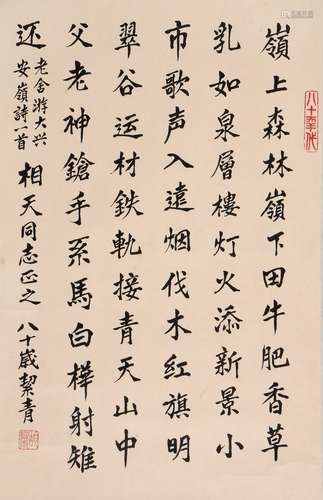 嶺上森林嶺下田牛肥香草
乳如泉層樓灯火添新景小
市歌声入遠烟伐木红旗明
翠谷运材鉄軌接青天山中
父老神鎗手系馬白樺射雉
还
老舍游大兴
安嶺詩一首
相天同志正之 八十歲絜青